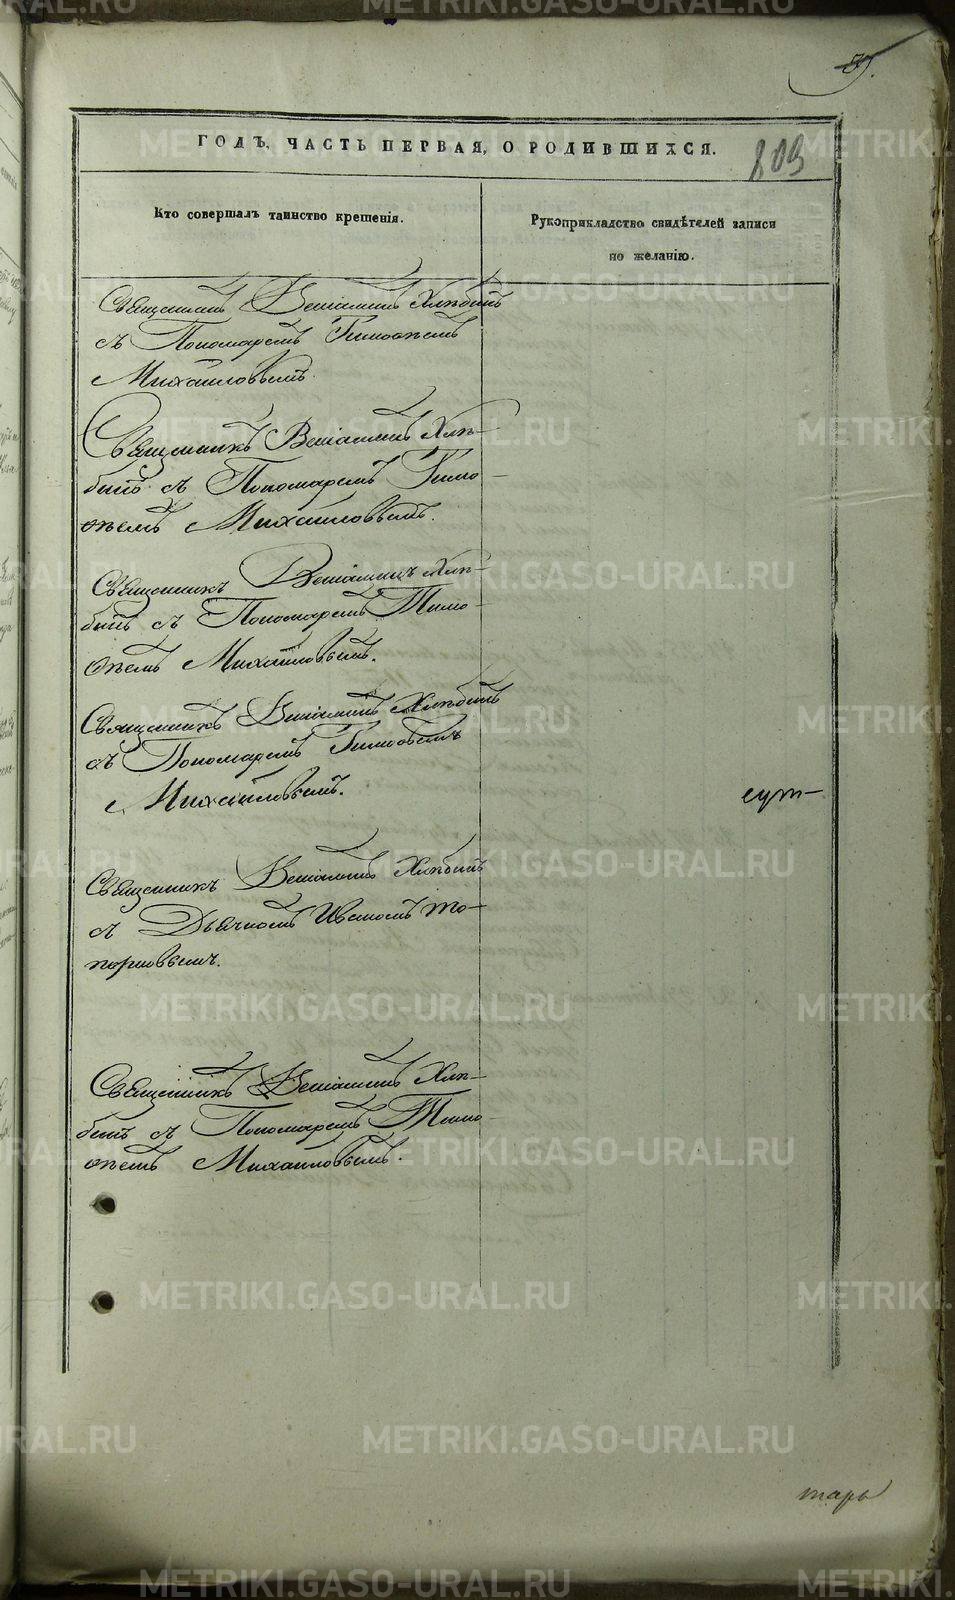 ГОДЪ, ЧАСТЬ ПЕРВАЯ, О РОДИВШИХСЯ.
203
Кто совершалъ таинство крещенія.
Рукоприкладство свидѣтелей записи
по желанію.
Священникъ Веніаминъ Хлѣбинъ
съ Пономаремъ Тимоѳеемъ
Михайловымъ.
Священникъ Веніаминъ Хлѣ-
бинъ съ Пономаремъ Тимо-
ѳеемъ Михайловымъ.
Священникъ Веніаминъ Хлѣ-
бинъ съ Пономаремъ Тимо-
ѳеемъ Михайловымъ.
Священникъ Веніаминъ Хлѣбинъ
съ Пономаремъ Тимоѳеемъ
Михайловымъ.
Священникъ Веніаминъ Хлѣбинъ
съ Дьячкомъ Иваномъ То-
порковымъ.
Священникъ Веніаминъ Хлѣ-
бинъ съ Пономаремъ Тимо-
ѳеемъ Михайловымъ.
METRIKI.GASO-URAL.RU